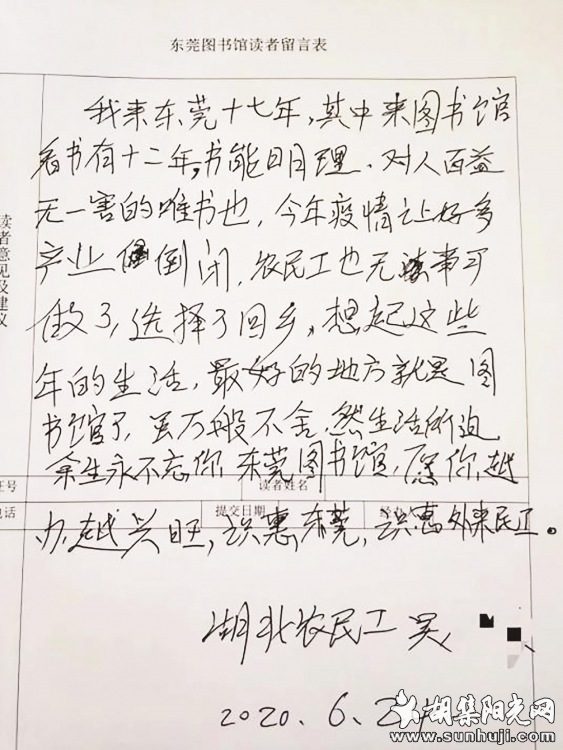 东莞图书馆读者留言表
我来东莞十七年,其中来图书馆
看书有十二年,书能明理,对人百益
无一害的唯书也,今年疫情让好多
产业倒闭,农民工也无事可
做了,选择了回乡,想起这些
年的生活,最好的地方就是图
书馆了,虽万般不舍,然生活所迫
余生永不忘你,东莞图书馆,愿你越
办越兴旺,识惠东莞,识惠外来民工。
读者意见及建议
证号
读者姓名
电话
提交日期
经办人
湖北农民工 吴
2020. 6. 24
胡集阳光网
www.sunhuji.com